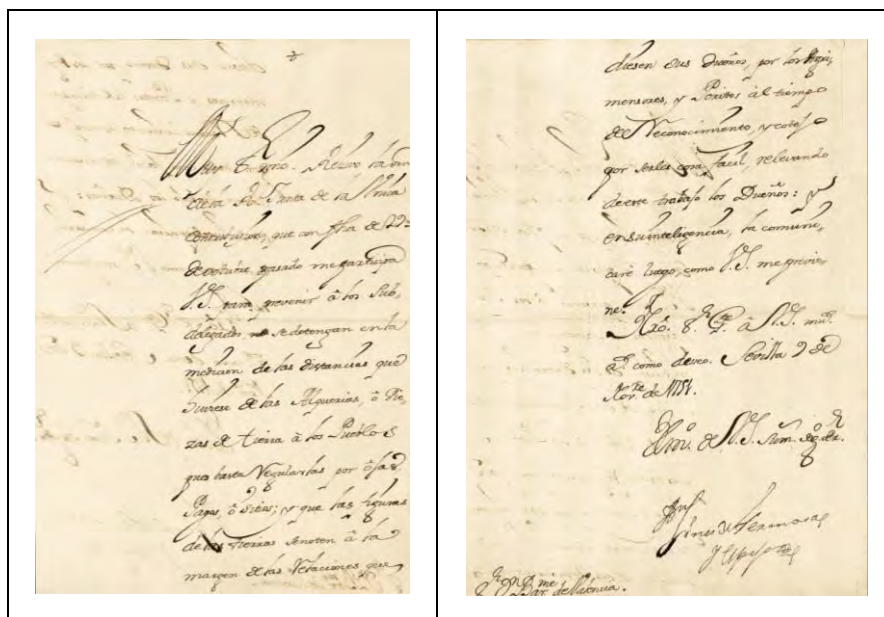 Muy S.r mio. Recivo la orn
de la R.l Junta de la Unica
contribuzion, que con fha de 29
de octubre pasado me participa
V.S. para prevenir â los Sub,
delegados, no se detengan en la
medicion de las distancias que
huviese de las Alquerias, ô Pie,
zas de tierra â los Pueblos
pues basta regularlas por
Pagos, ô sitios; y que las figuras
de las tierras se noten â la
margen de las Relaciones que,
diesen sus Dueños, por los Agri,
mensores, y Peritos âl tiempo
de Reconocimiento, y cotejo
por serles cosa facil, relevando
de este trabajo los Dueños: y
en su inteligencia, la comuni,
caré luego, como V.S. me previe,
ne.
N.ro S.r G.e â V.S. m.s
a.s como deseo. Sevilla 9 de
Nov.re de 1751.
de V.S. su m.
Gines de Hermosa
y Espejo
S.r D.n B.me de Valencia.